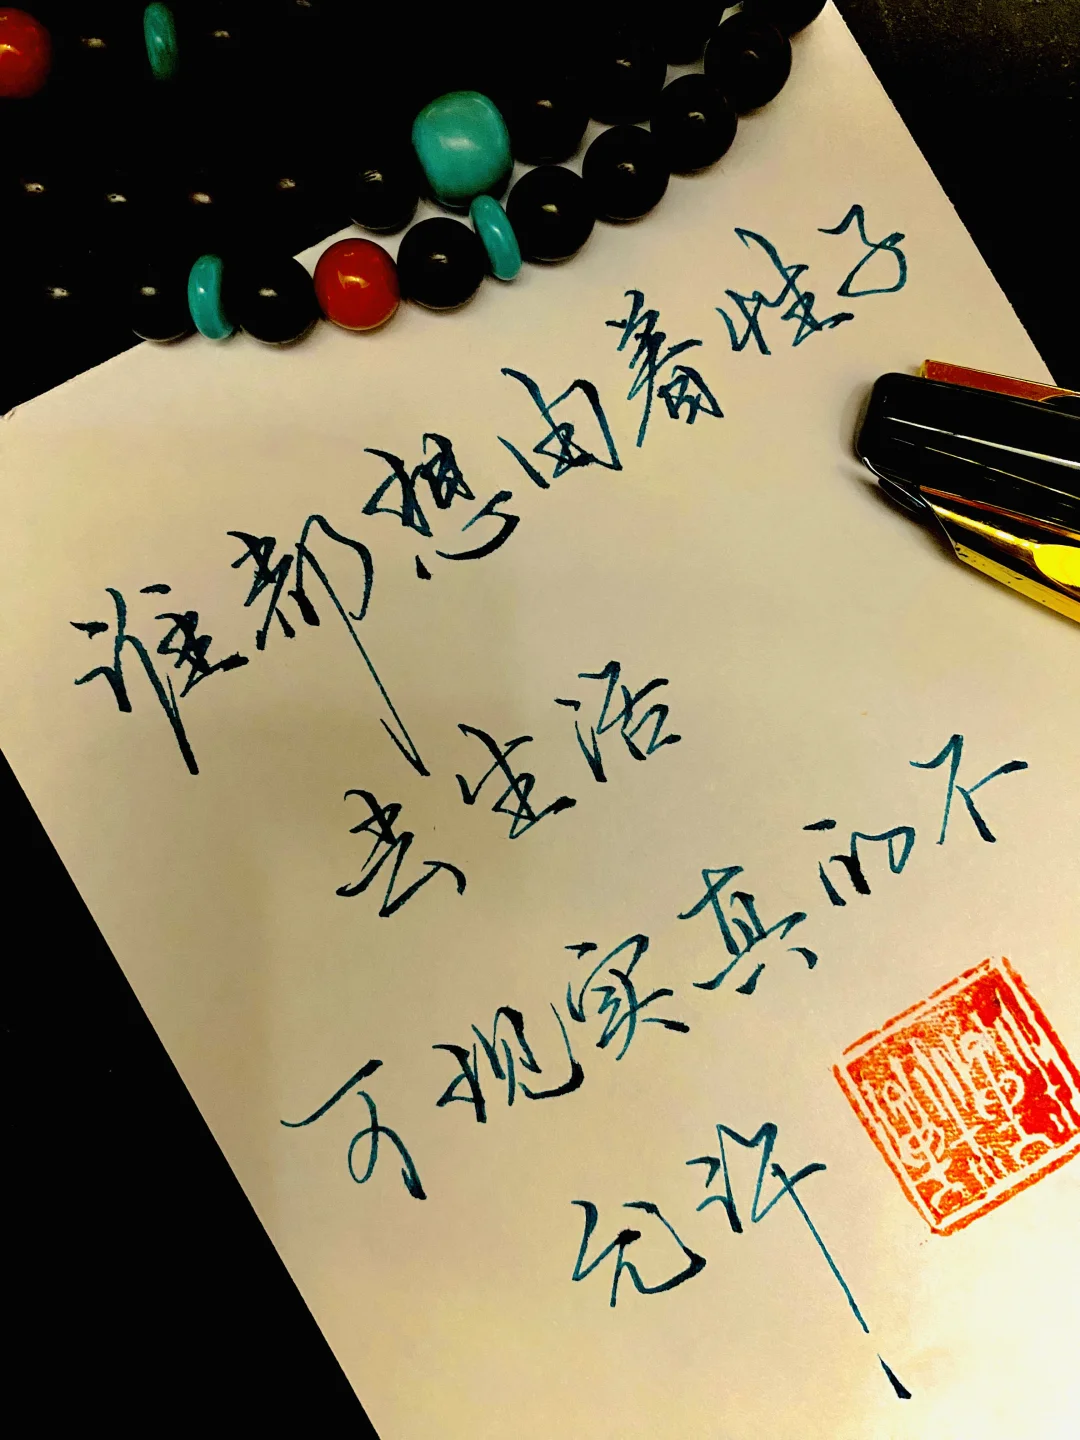 谁都想由着性子
去生活
可现实真的不
允许、